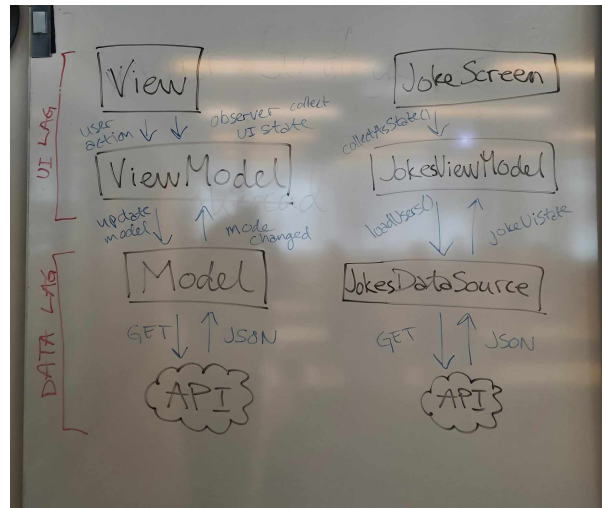 View
user
action
observer collect
UI state
ViewModel
update
model
mode
changed
Model
GET
JSON
API
JokeScreen
collectAsState()
JokesViewModel
loadUsers()
jokeUistate
JokesDataSource
GET
JSON
API
UI LAG
DATA LAG